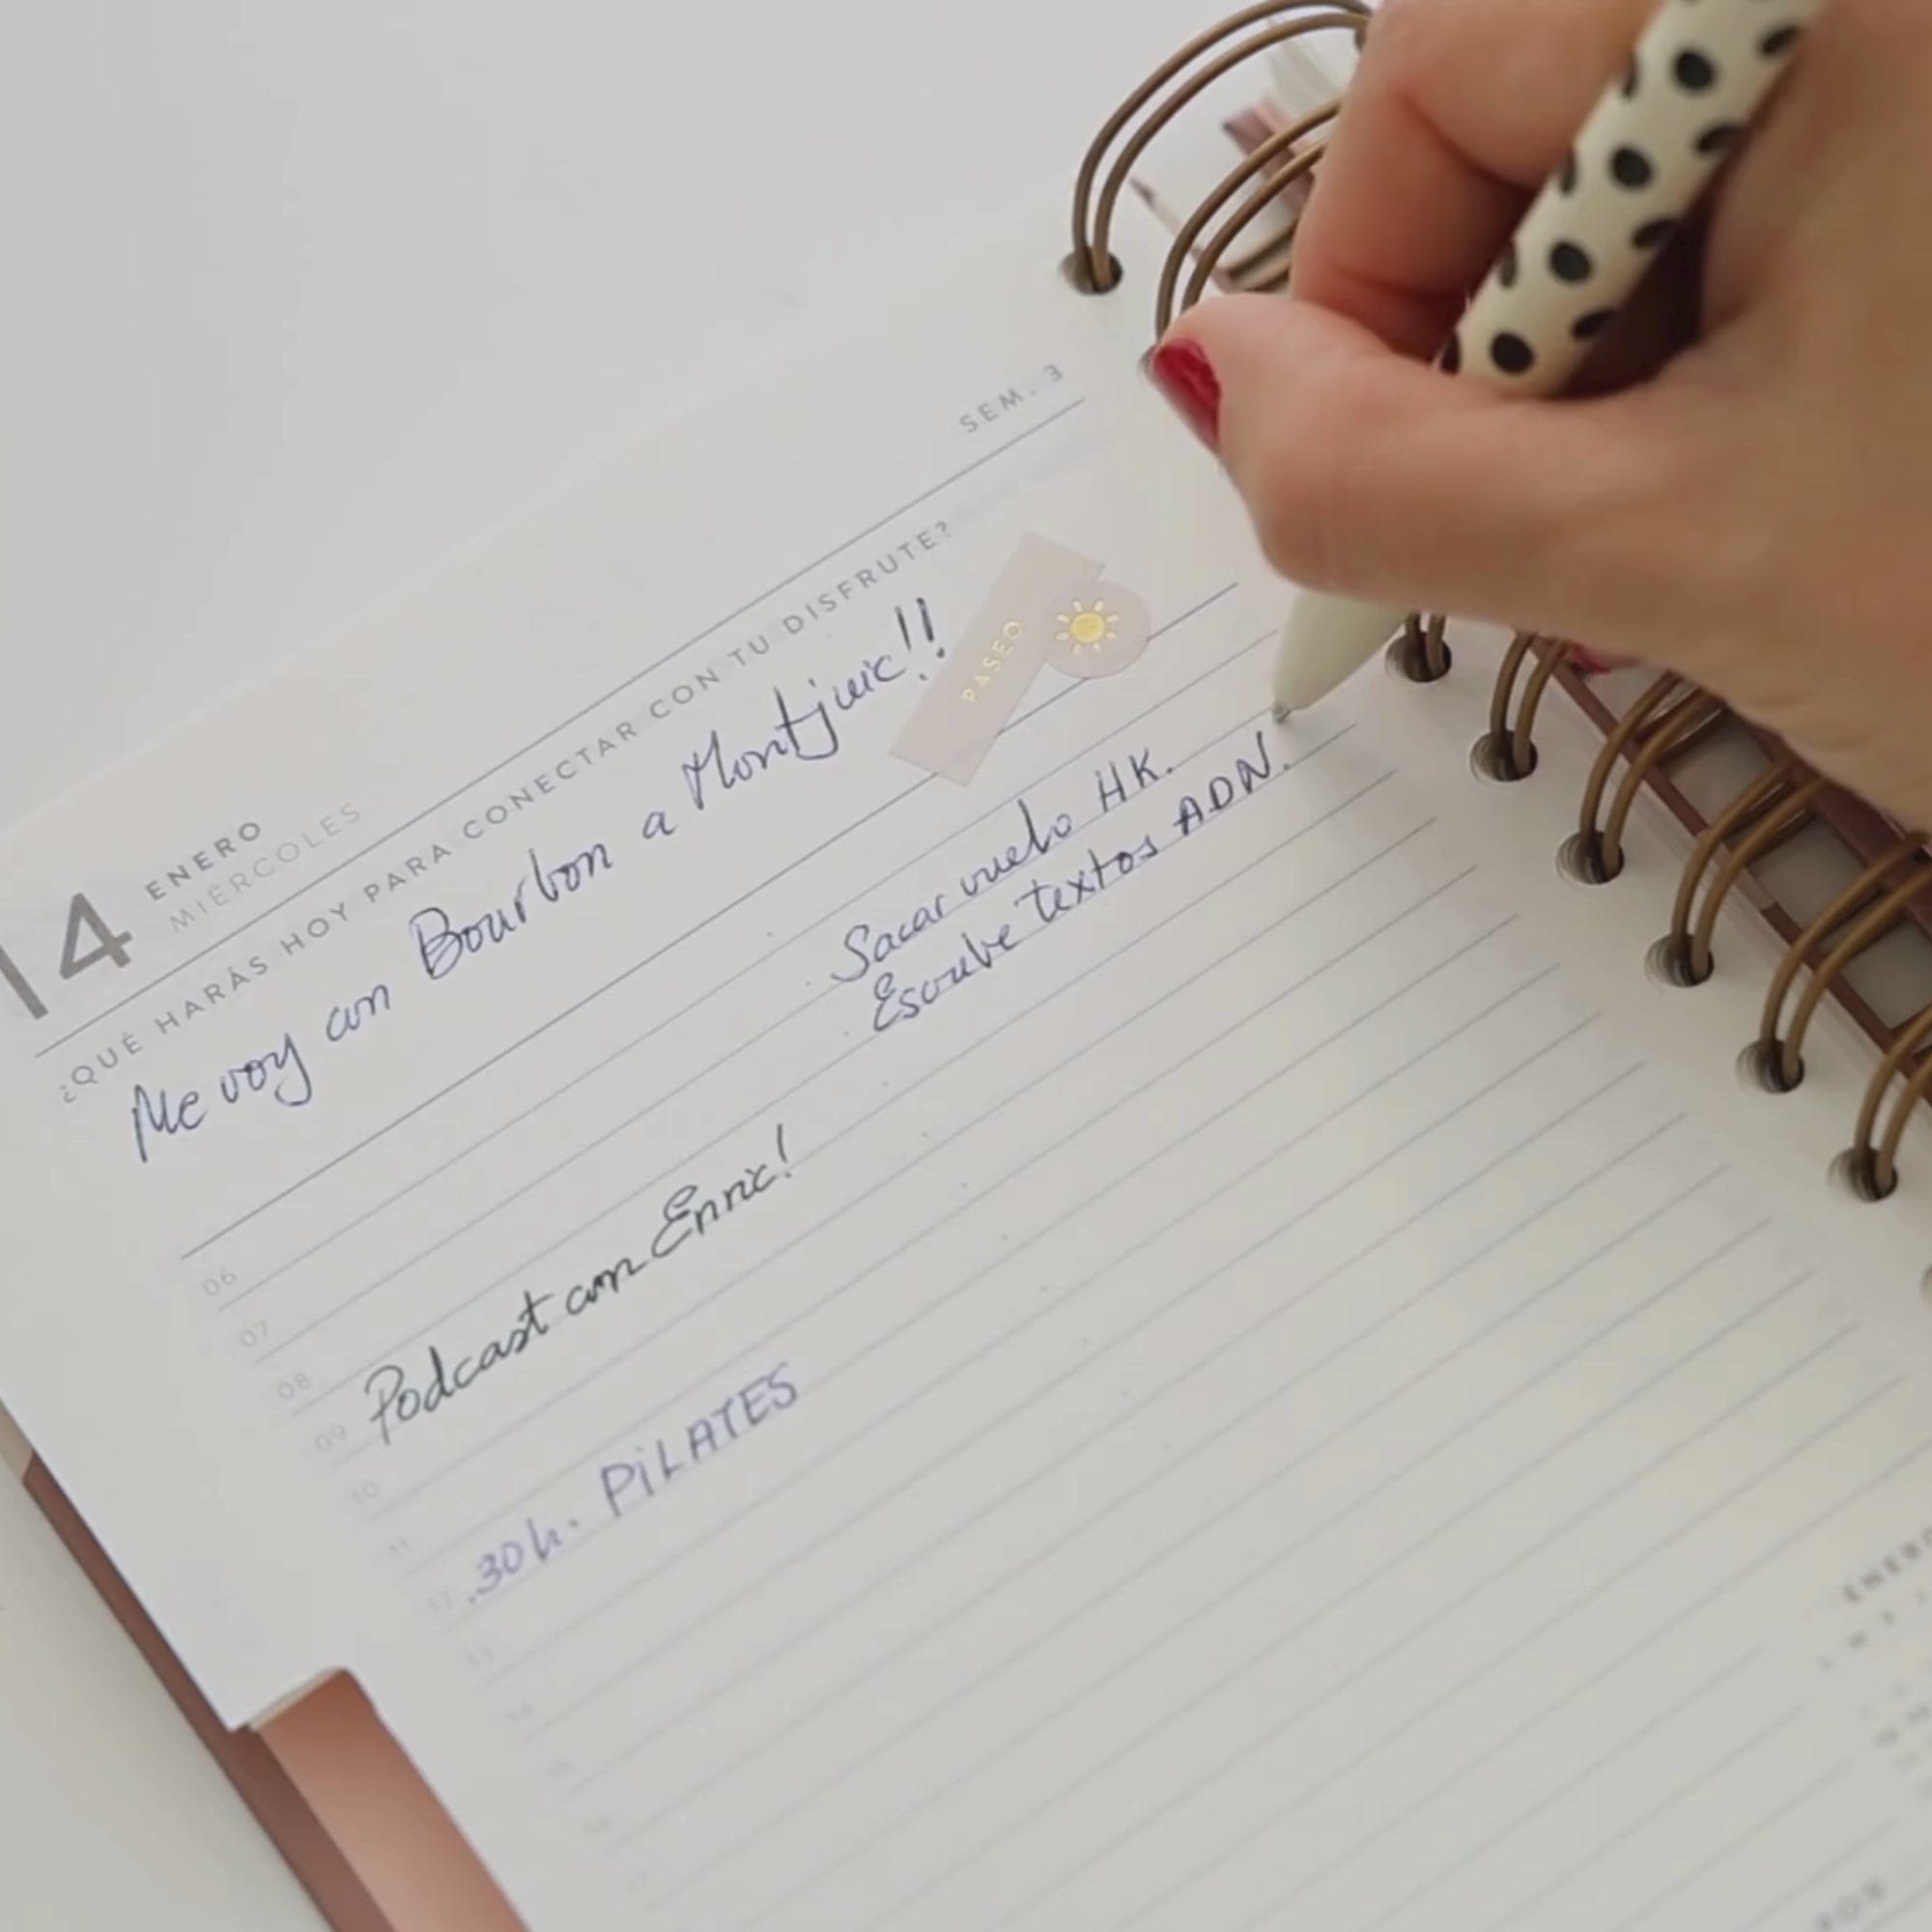 14 ENERO
MIÉRCOLES
SEM. 3
¿QUÉ HARÁS HOY PARA CONECTAR CON TU DISFRUTE?
Me voy con Bourbon a Montjuic!!
PASEO
Sacar vuelo HK.
Escribe textos ADN.
06
07
08
09 Podcast con Enric!
10
11
12 .30h. PiLATES
13
14
15
16
17
ENERO